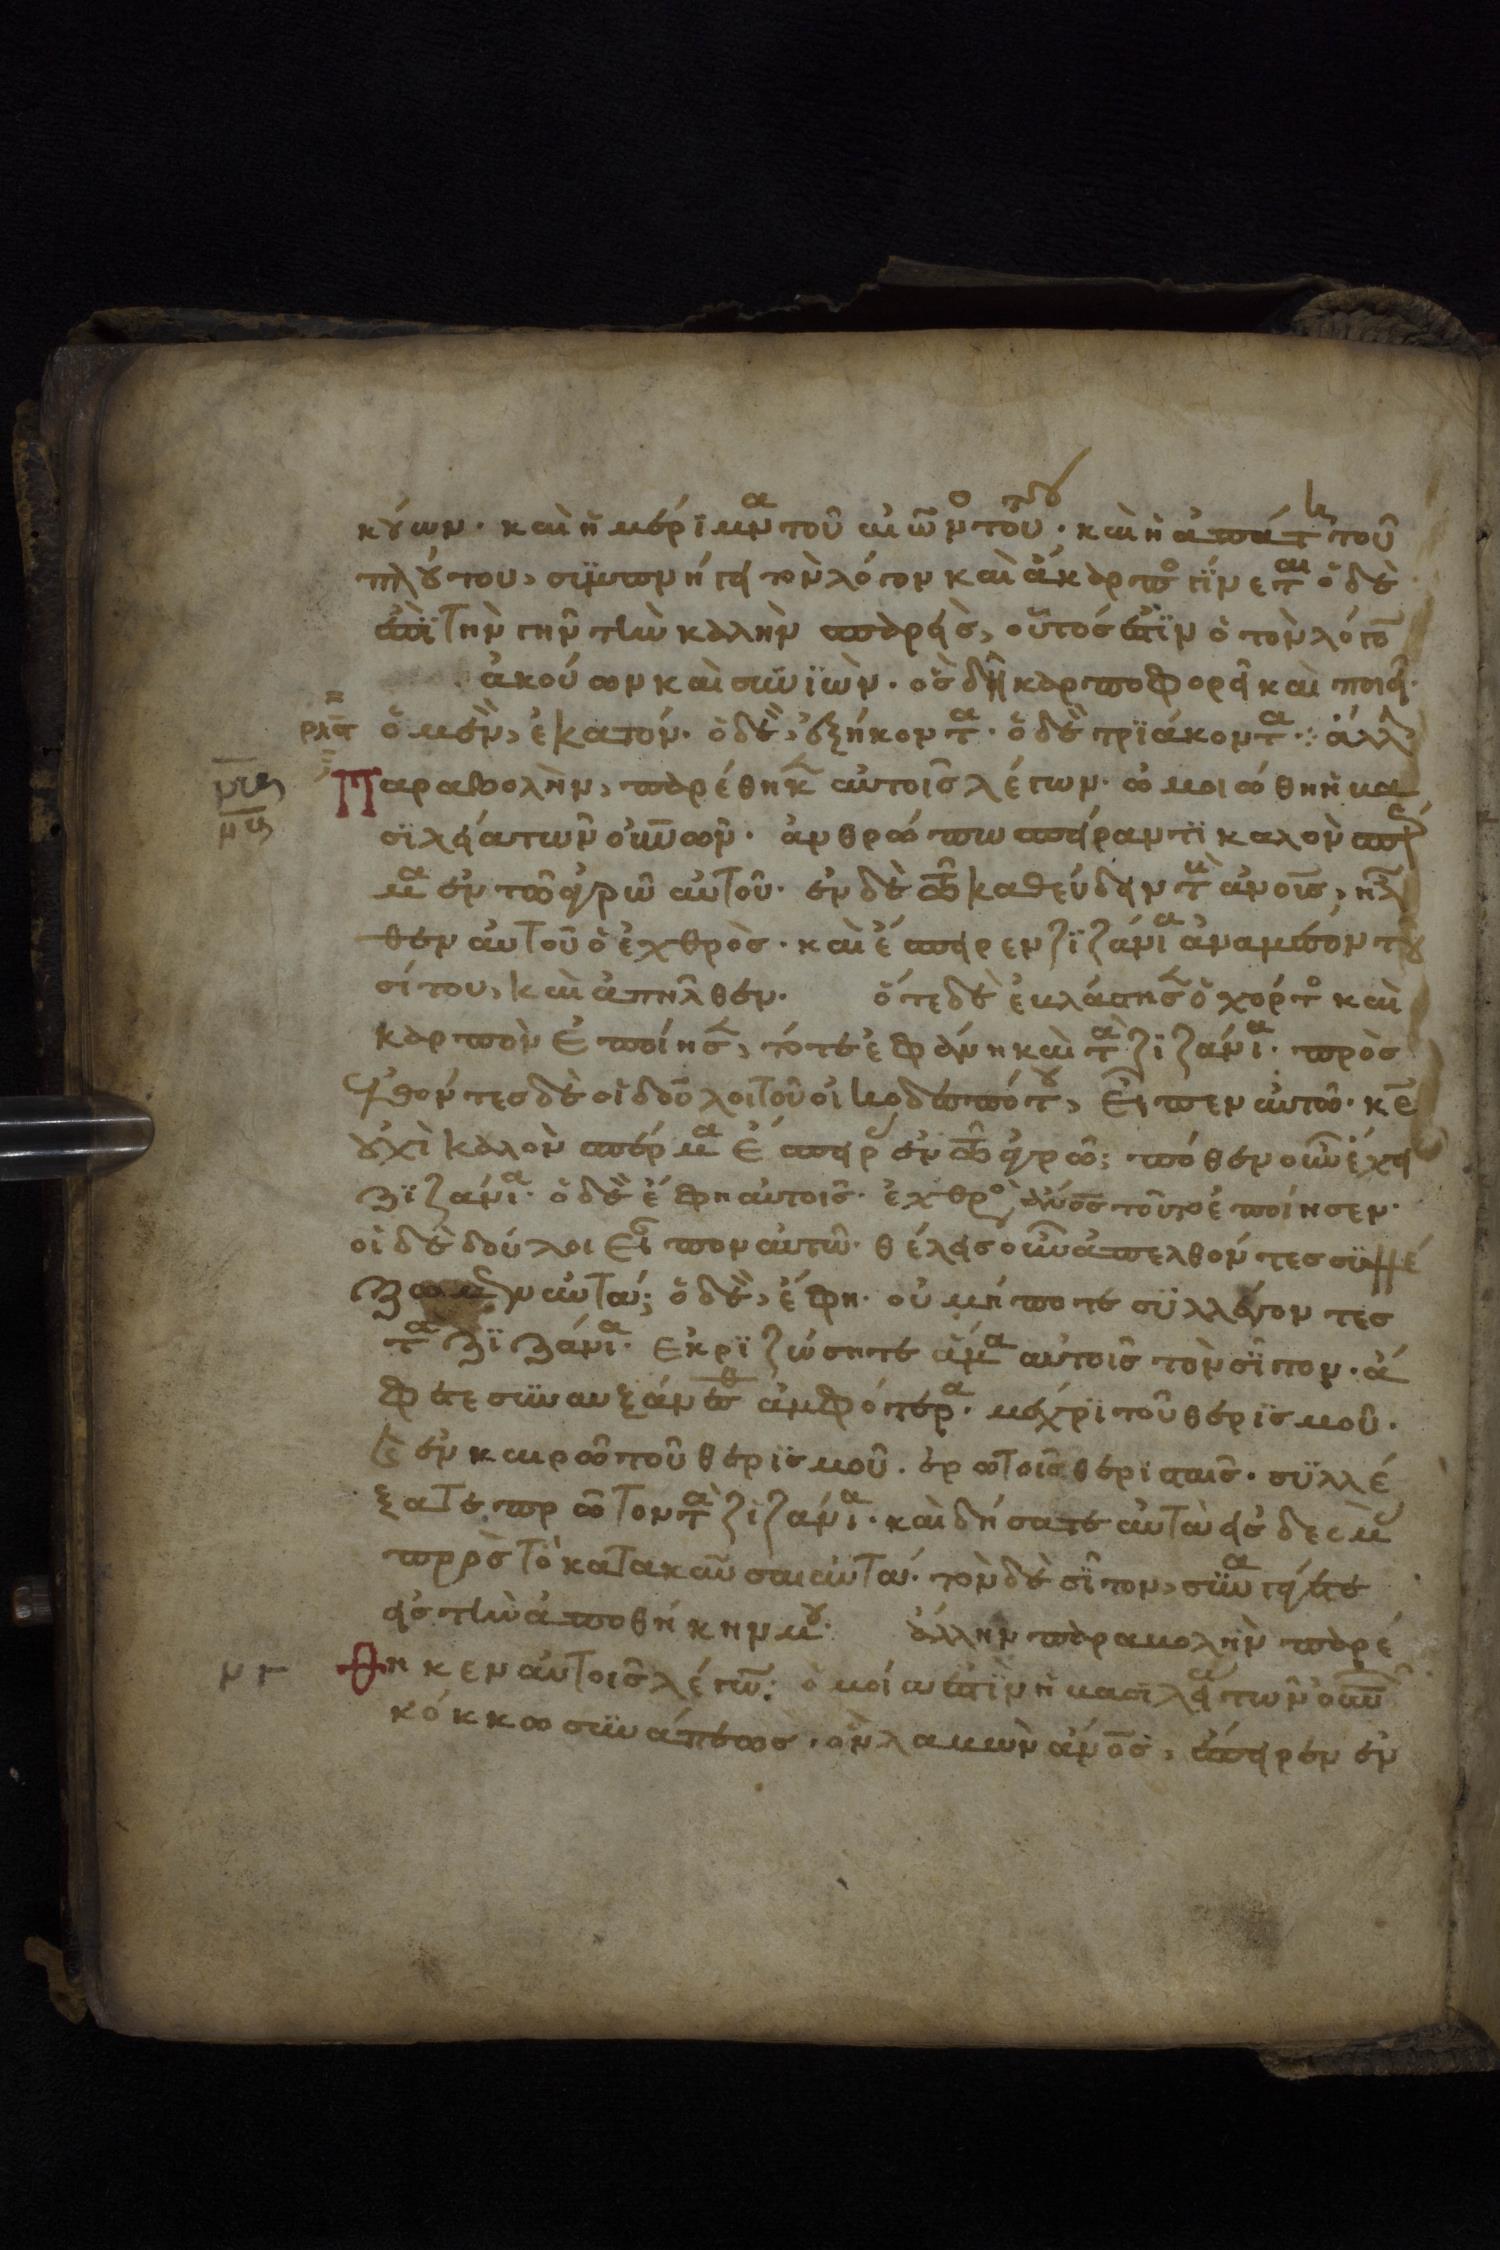 κούων· καὶ ἡ μέριμνα τοῦ αἰῶνος τούτου· καὶ ἡ ἀπάτη τοῦ
πλούτου, συμπνήγει τὸν λόγον καὶ ἄκαρπος γίνεται ὁ δὲ
ἐπὶ τὴν γὴν τὴν καλὴν σπαρεὶς, οὗτός ἐστὶν ὁ τὸν λόγον
ἀκούων καὶ συνϊὼν· ὃς δὴ καρποφορεῖ καὶ ποιεῖ·
ρλϛ ὃ μὲν, ἑκατόν· ὃ δὲ, ἑξήκοντα· ὃ δὲ τριάκοντα· ἄλλ
Παραβολὴν, παρέθηκεν αὐτοῖς λέγων· ὡμοιώθη ἡ βα
σιλεία τῶν οὐνῶν· ἀνθρώπω σπείραντι καλὸν σπέρ
μα ἐν τῶ ἀγρῶ αὐτοῦ· ἐν δὲ τῶ καθεύδειν τοὺς ἀνοῦς, ἦλ
θεν αὐτοῦ ὁ ἐχθρὸς· καὶ ἔσπειρεν ζιζάνια ἀναμέσον τοῦ
σίτου, καὶ ἀπῆλθεν· ὅτε δὲ ἐβλάστησεν ὁ χόρτος καὶ
καρπὸν ἐποίησεν, τότε ἐφάνη καὶ τὰ ζιζάνια· προσ
ελθόντες δὲ οἱ δοῦλοι τοῦ οἰκοδεσπότου, εἶπεν αὐτῶ· κε
οὐχὶ καλὸν σπέρμα ἔσπειρας ἐν τῶ ἀγρῶ; πόθεν οὖν ἔχει
ζιζάνια· ὁ δὲ ἔφη αὐτοῖς· ἐχθρὸς ἀνος τοῦτο ἐποίησεν·
οἱ δὲ δούλοι εἶπον αὐτῶ· θέλεις οὖν ἀπελθόντες συλλέ
ξωμεν αὐτά; ὁ δὲ, ἔφη· οὐ μήποτε συλλέγοντες
τὰ ζιζάνια· ἐκριζώσητε ἅμα αὐτοῖς τὸν σῖτον· ἄ
φετε συναυξάνεσθαι ἀμφότερα· μέχρι τοῦ θερισμοῦ·
καὶ ἐν καιρῶ τοῦ θερισμοῦ· ἐρῶ τοῖς θερισταῖς· συλλέ
ξατε πρῶτον τὰ ζιζάνια· καὶ δήσατε αὐτὰ εἰς δεσμὰς
πρὸς τὸ κατακαῦσαι αὐτά· τὸν δὲ σῖτον, συναγάγετε
εἰς τὴν ἀποθήκην μου· ἄλλην παραβολὴν παρέ
θηκεν αὐτοῖς λέγων; ὁμοία ἐστὶν ἡ βασιλεία τῶν οὐνῶν
κόκκω συνάπεως· ὃν λαβὼν ἄνος, ἔσπειρεν ἐν